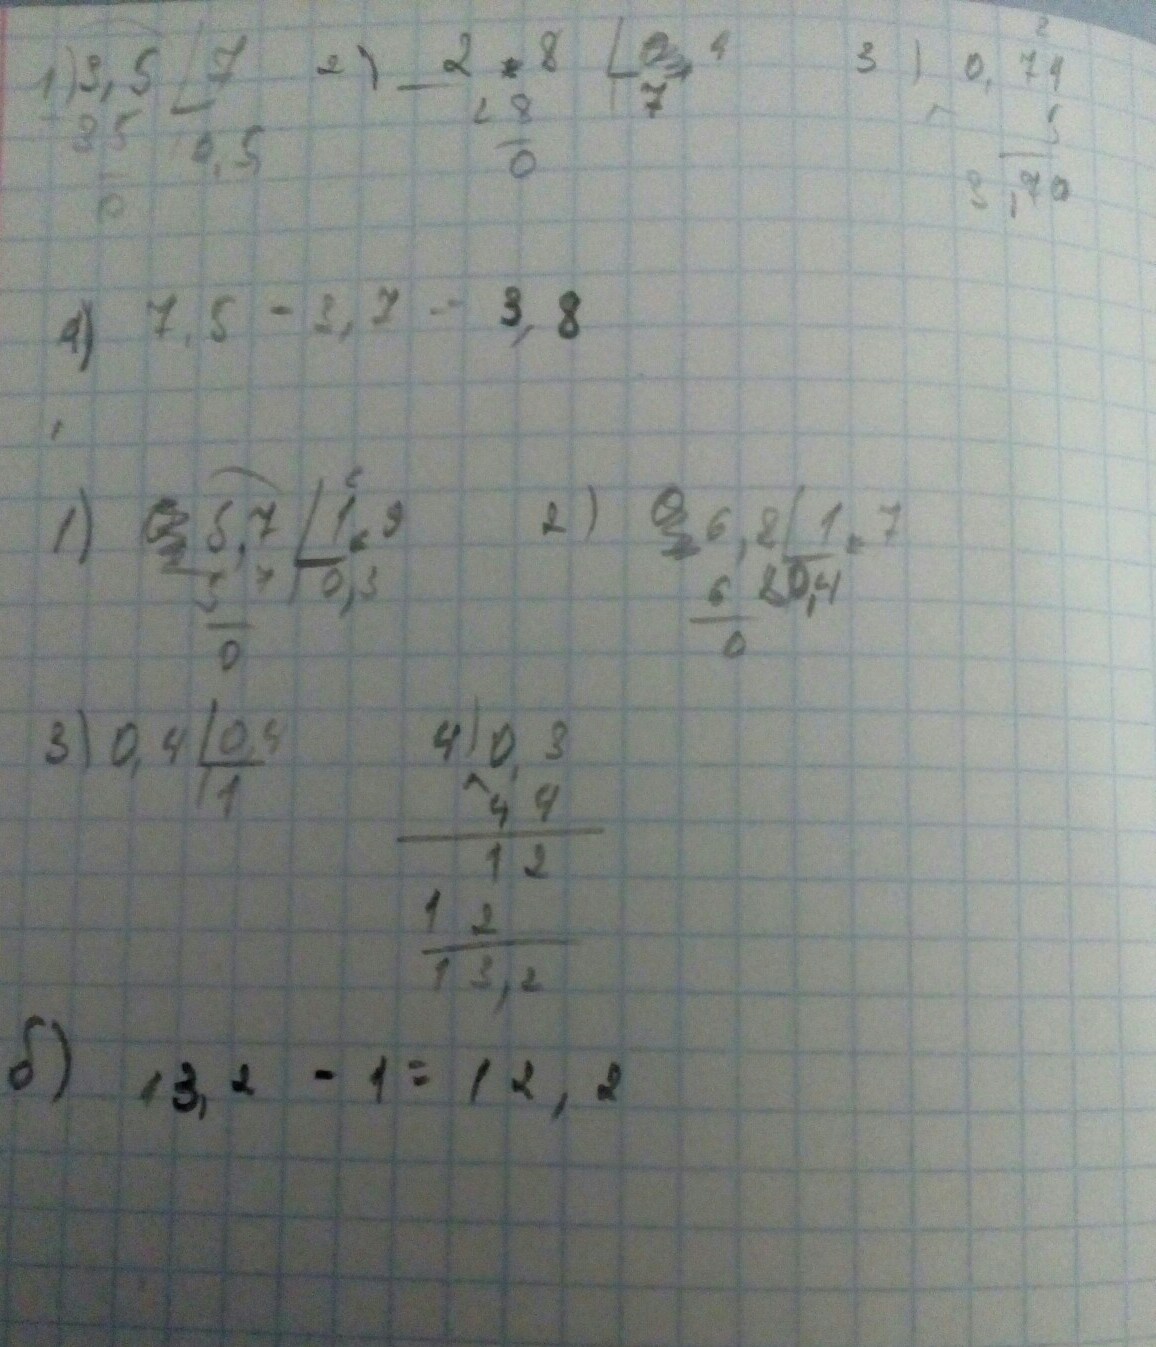 1) 3,5 7 2) 2,8 0,4 3) 0,74
35 0,5 28 7 5
0 0 3,70
4) 7,5 - 3,7 = 3,8
1) 5,7 1,9 2) 6,8 1,7
5 7 0,3 6 8 0,4
0 0
3) 0,4 0,4 4) 0,3
1 4 4
1 2
1 2
1 3,2
б) 13,2 - 1 = 12,2